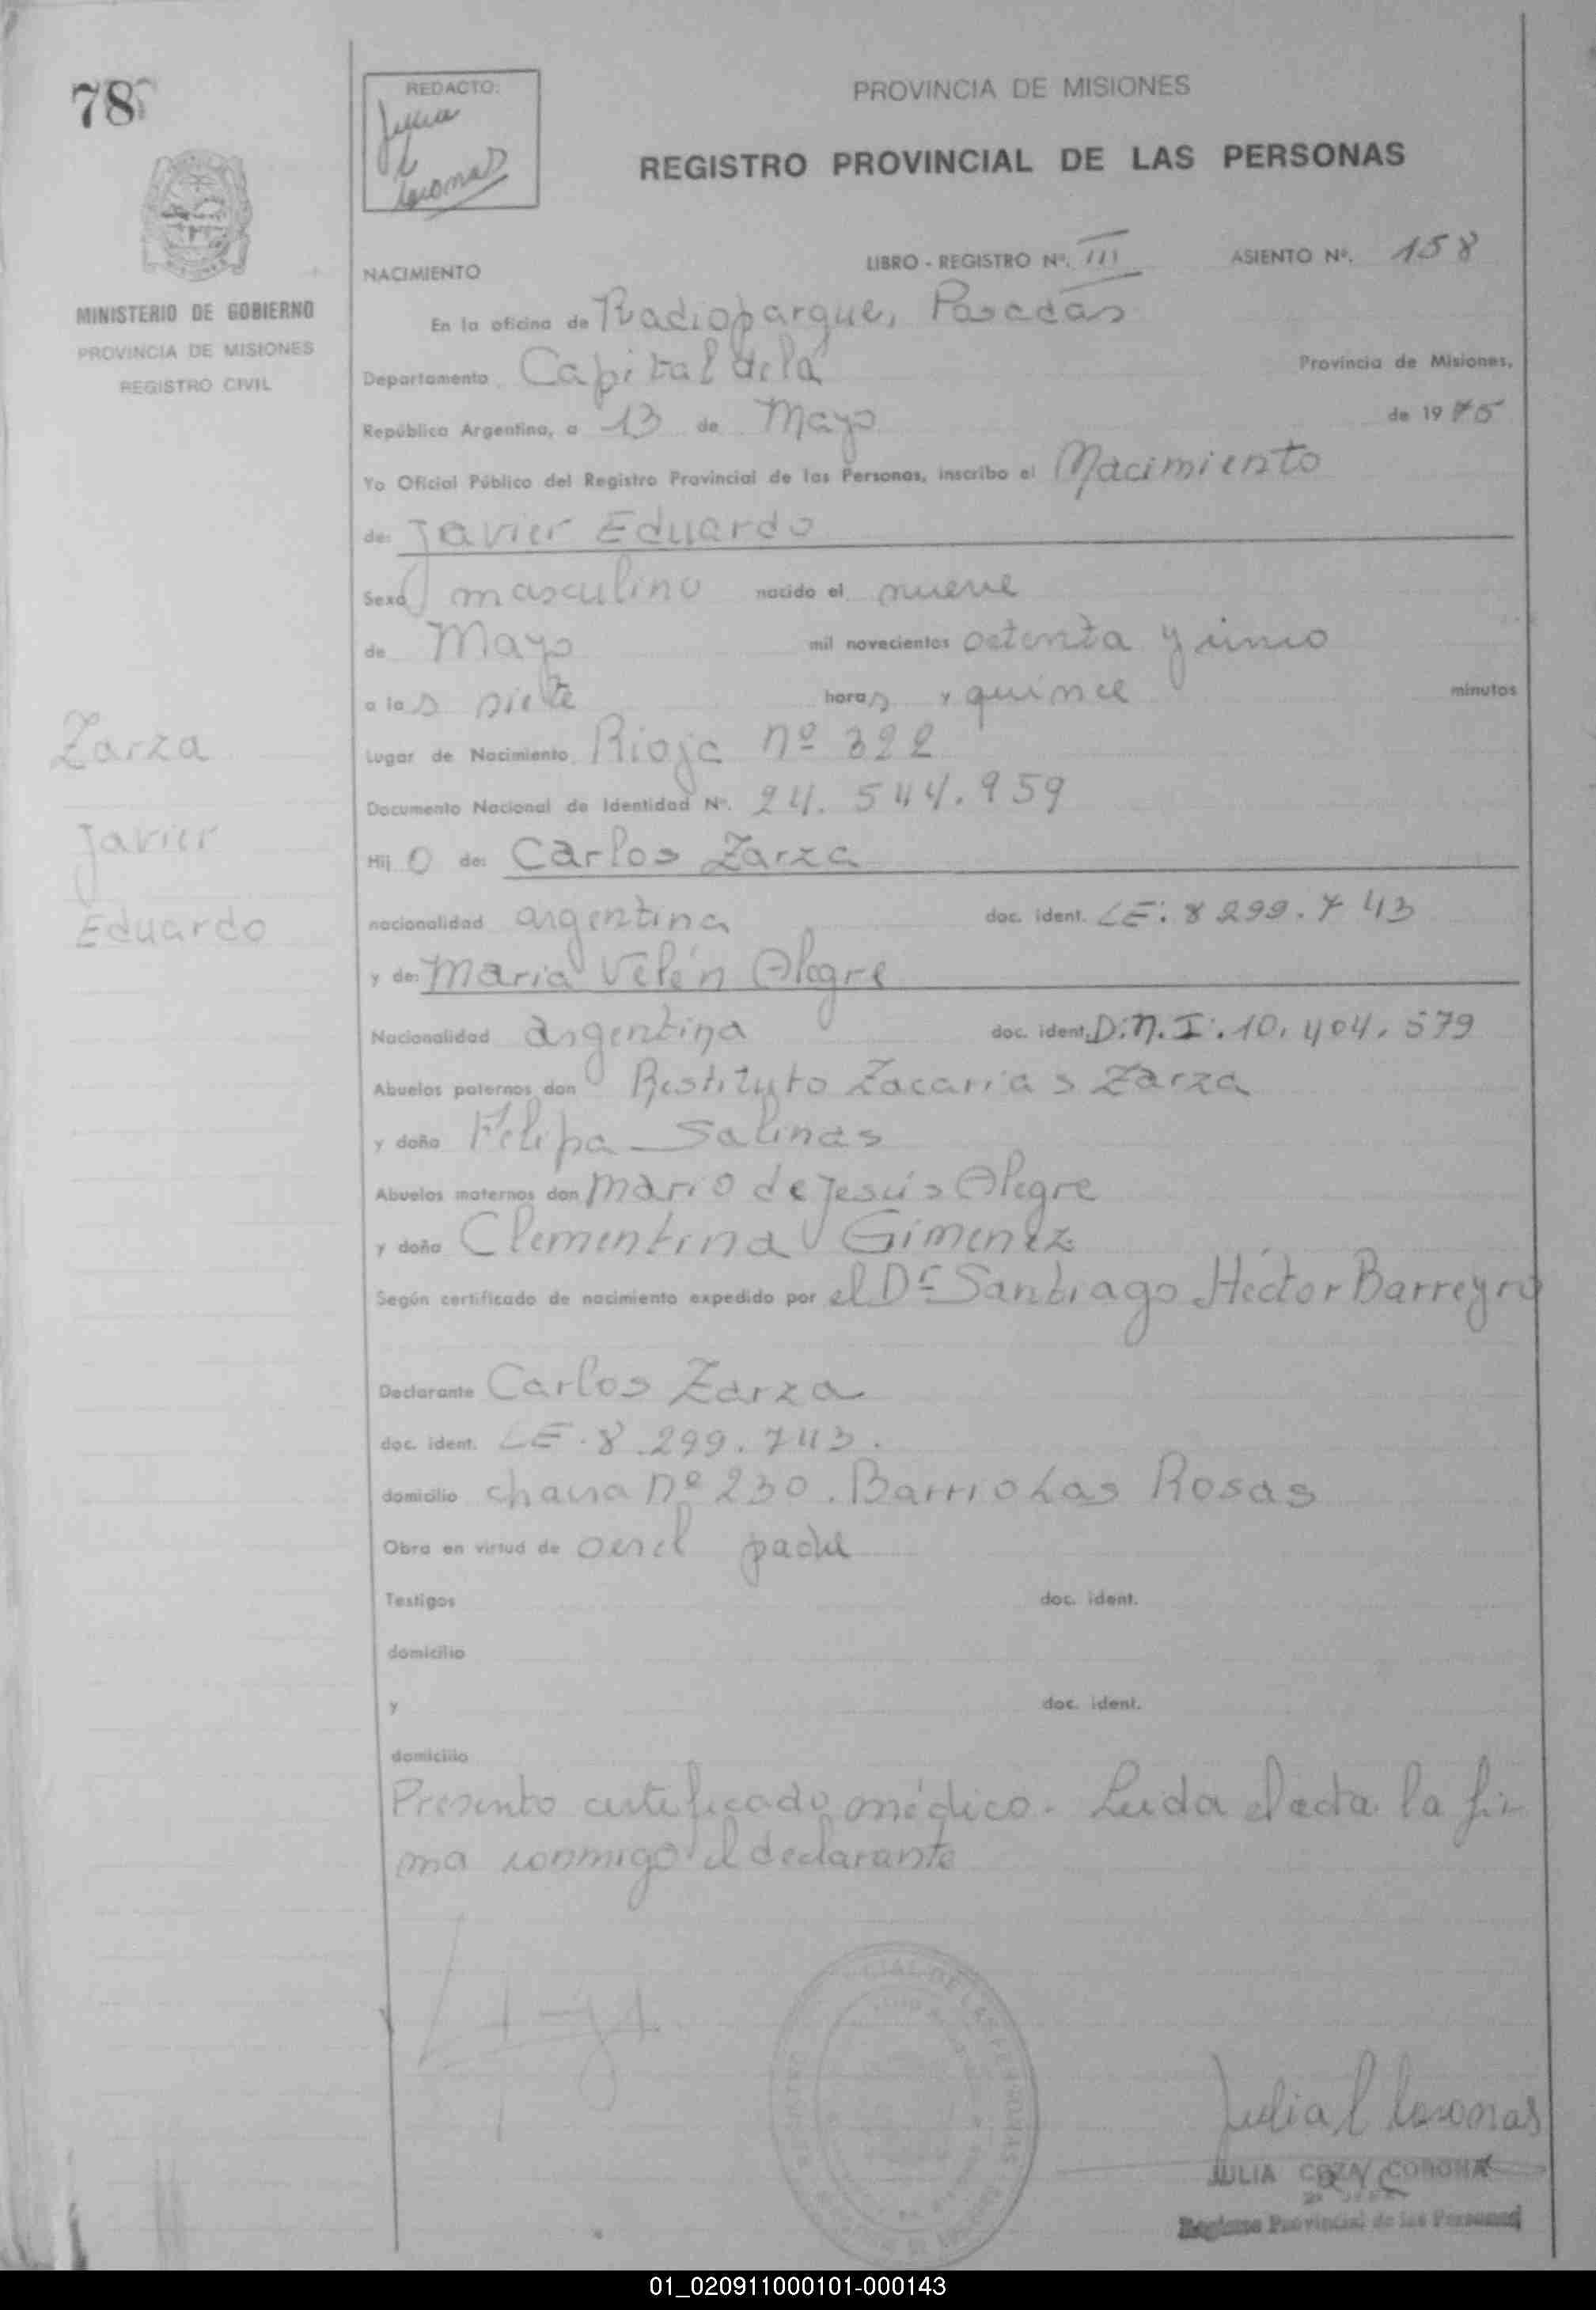 78
REDACTO:
Julia
Coronas
PROVINCIA DE MISIONES
REGISTRO PROVINCIAL DE LAS PERSONAS
MINISTERIO DE GOBIERNO
PROVINCIA DE MISIONES
REGISTRO CIVIL
NACIMIENTO
LIBRO - REGISTRO Nº. III ASIENTO Nº. 158
En la oficina de Radioparque, Posadas
Departamento Capital de la Provincia de Misiones,
República Argentina, a 13 de Mayo de 1975
Yo Oficial Público del Registro Provincial de las Personas, inscribo el Nacimiento
de: Javier Eduardo
Sexo masculino nacido el nueve
de Mayo mil novecientos setenta y cinco
a las siete horas y quince minutos
Lugar de Nacimiento Rioja nº 322
Documento Nacional de Identidad Nº. 24.544.959
Hijo de: Carlos Zarza
nacionalidad argentina doc. ident. LE: 8299.743
y de: Maria Velén Alegre
Nacionalidad argentina doc. ident. D.N.I.: 10.404.579
Abuelos paternos don Restituto Zacarias Zarza
y doña Felipa Salinas
Abuelos maternos don Mario de Jesús Alegre
y doña Clementina Gimenez
Según certificado de nacimiento expedido por el Dr Santiago Héctor Barreyro
Zarza
Javier
Eduardo
Declarante Carlos Zarza
doc. ident. LE. 8.299.743.
domicilio chacra nº 230. Barrio Las Rosas
Obra en virtud de ser el padre
Testigos doc. ident.
domicilio
y doc. ident.
domicilio
Presento certificado médico. Leida el acta la fir-
ma conmigo el declarante
Julia Coronas
JULIA
Registro Provincial de las Personas
01_020911000101-000143